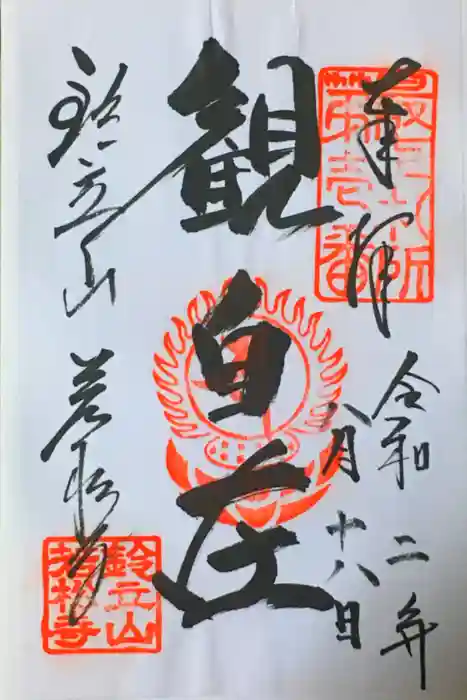 奉拝
令和二年
八月十八日
最上札所
第壱番
観自在
鈴立山
若松寺
鈴立山
若松寺